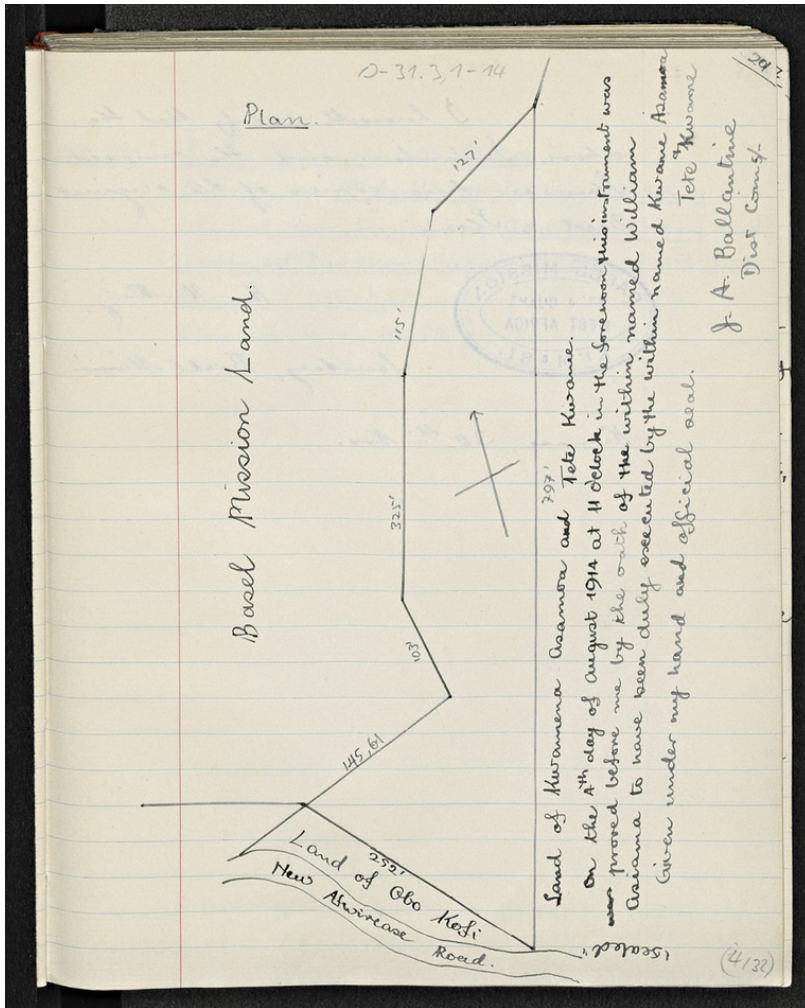 D-31.3,1-14
29
Plan.
Basel Mission Land.
127'
115'
325'
103'
145,61
252'
797'
Land of Obo Kofi
New Road.
Land of Kwamena Asamoa and Tete Kwame.
On the 4th day of August 1914 at 11 o'clock in the forenoon this instrument was
proved before me by the oath of the within named William
Asiama to have been duly executed by the within named Kwame Asamoa
& Tete Kwame
Given under my hand and official seal.
J. A. Ballantine
Dist Coms
"sealed"
(4/32)